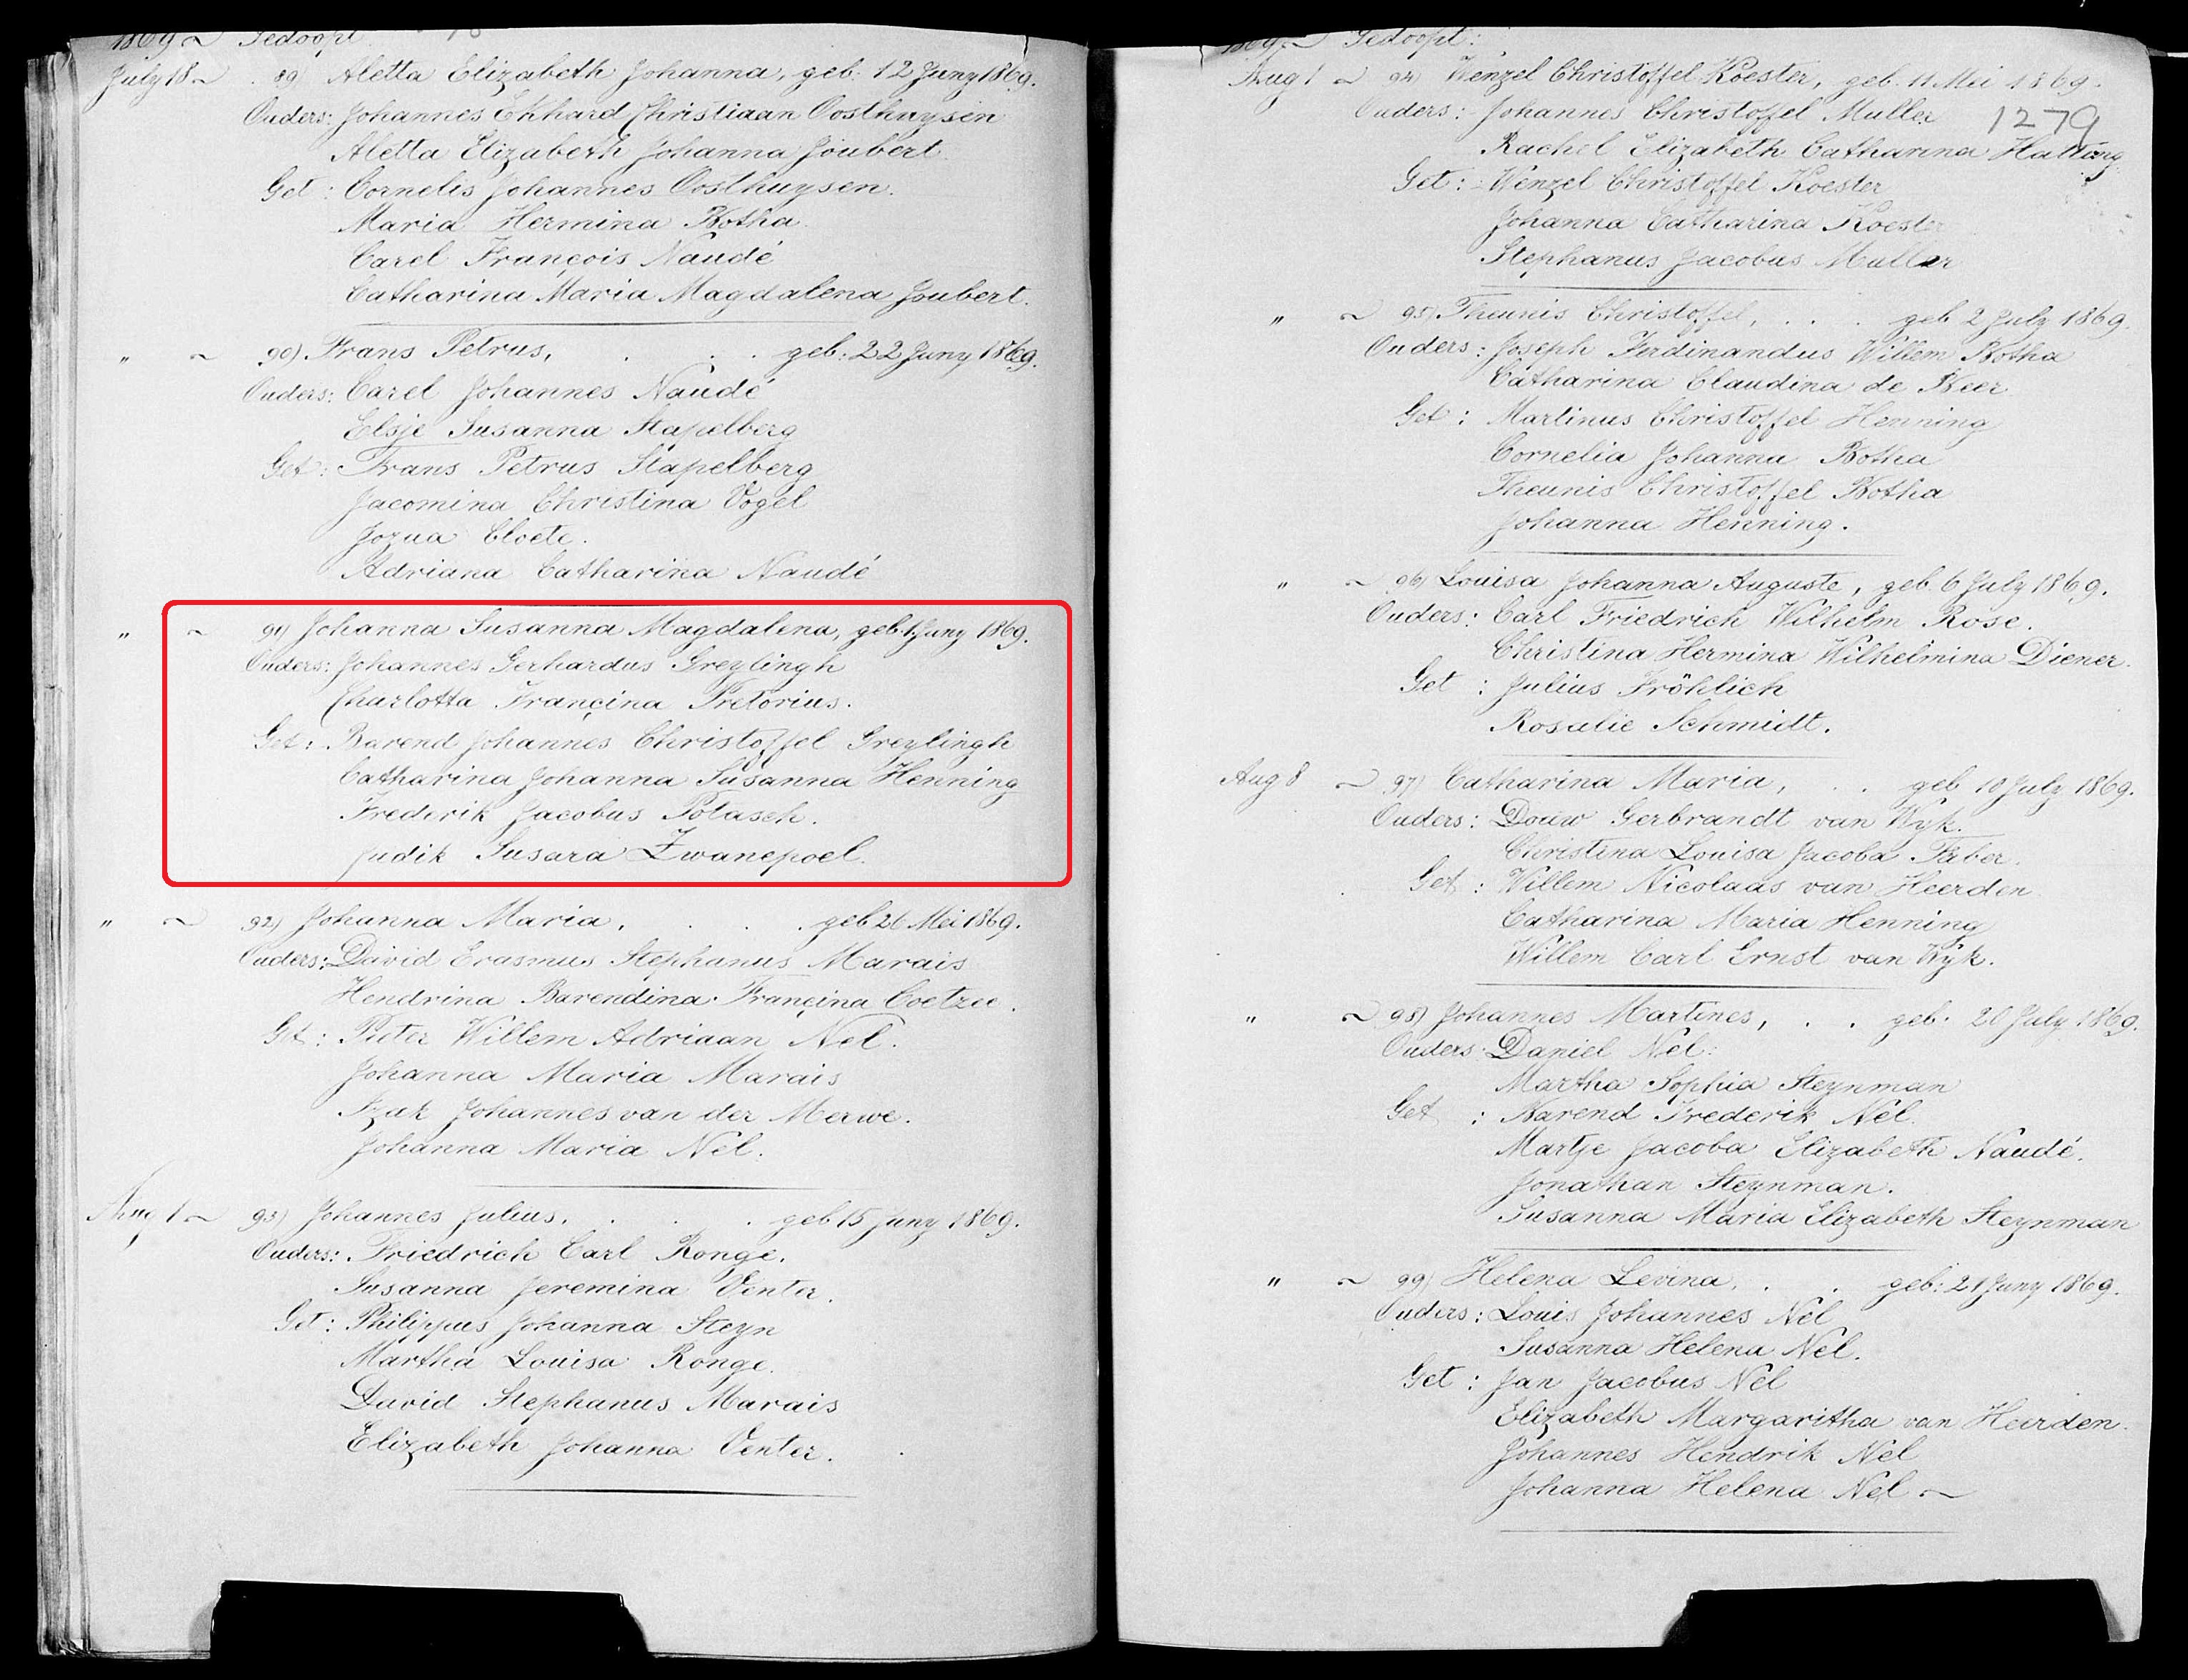 1869 ~ Gedoopt
July 18 ~ 89) Aletta Elizabeth Johanna, geb: 12 Juny 1869.
Ouders: Johannes Ekhard Christiaan Oosthuysen
Aletta Elizabeth Johanna Joubert
Get: Cornelis Johannes Oosthuysen.
Maria Hermina Botha
Carel François Naudé
Catharina Maria Magdalena Joubert.
" ~ 90) Frans Petrus, . . . geb: 22 Juny 1869.
Ouders: Carel Johannes Naudé
Elsje Susanna Stapelberg
Get: Frans Petrus Stapelberg
Jacomina Christina Vogel
Jozua Cloete.
Adriana Catharina Naudé
" ~ 91) Johanna Susanna Magdalena, geb. 1 Juny 1869.
Ouders: Johannes Gerhardus Greylingh
Charlotta Françina Pretorius.
Get: Barend Johannes Christoffel Greylingh
Catharina Johanna Susanna Henning
Frederik Jacobus Potasch.
Judik Susara Zwanepoel.
" ~ 92) Johanna Maria, . . . geb 26 Mei 1869.
Ouders: David Erasmus Stephanus Marais
Hendrina Barendina Françina Coetzee.
Get: Pieter Willem Adriaan Nel.
Johanna Maria Marais
Izak Johannes van der Merwe.
Johanna Maria Nel.
Aug 1 ~ 93) Johannes Julius, . . . geb 15 Juny 1869.
Ouders: Friedrich Carl Ronge.
Susanna Jeremina Venter.
Get: Philippus Johanna Steyn
Martha Louisa Ronge.
David Stephanus Marais
Elizabeth Johanna Venter.
1869 ~ Gedoopt:
Aug 1 ~ 94) Wenzel Christoffel Koester, geb. 11 Mei 1869.
Ouders: Johannes Christoffel Muller
1279
Rachel Elizabeth Catharina Hatting
Get: Wenzel Christoffel Koester
Johanna Catharina Koester
Stephanus Jacobus Muller
" ~ 95) Theunis Christoffel, . . . geb 2 July 1869.
Ouders: Joseph Ferdinandus Willem Botha
Catharina Claudina de Beer
Get: Martinus Christoffel Henning
Cornelia Johanna Botha
Theunis Christoffel Botha
Johanna Henning.
" ~ 96) Louisa Johanna Auguste, geb. 6 July 1869.
Ouders: Carl Friedrich Wilhelm Rose.
Christina Hermina Wilhelmina Diener.
Get: Julius Fröhlich
Rosalie Schmidt.
Aug 8 ~ 97) Catharina Maria, . . geb 10 July 1869.
Ouders: Douw Gerbrandt van Wyk.
Christina Louisa Jacoba Faber.
Get: Willem Nicolaas van Heerden
Catharina Maria Henning
Willem Carl Ernst van Wyk.
" ~ 98) Johannes Martines, . . geb. 20 July 1869.
Ouders: Daniel Nel:
Martha Sophia Steynman
Get: Barend Frederik Nel.
Martje Jacoba Elizabeth Naudé.
Jonathan Steynman.
Susanna Maria Elizabeth Steynman
" ~ 99) Helena Levina, . . geb: 21 Juny 1869.
Ouders: Louis Johannes Nel
Susanna Helena Nel.
Get: Jan Jacobus Nel
Elizabeth Margaritha van Heerden.
Johannes Hendrik Nel
Johanna Helena Nel ~